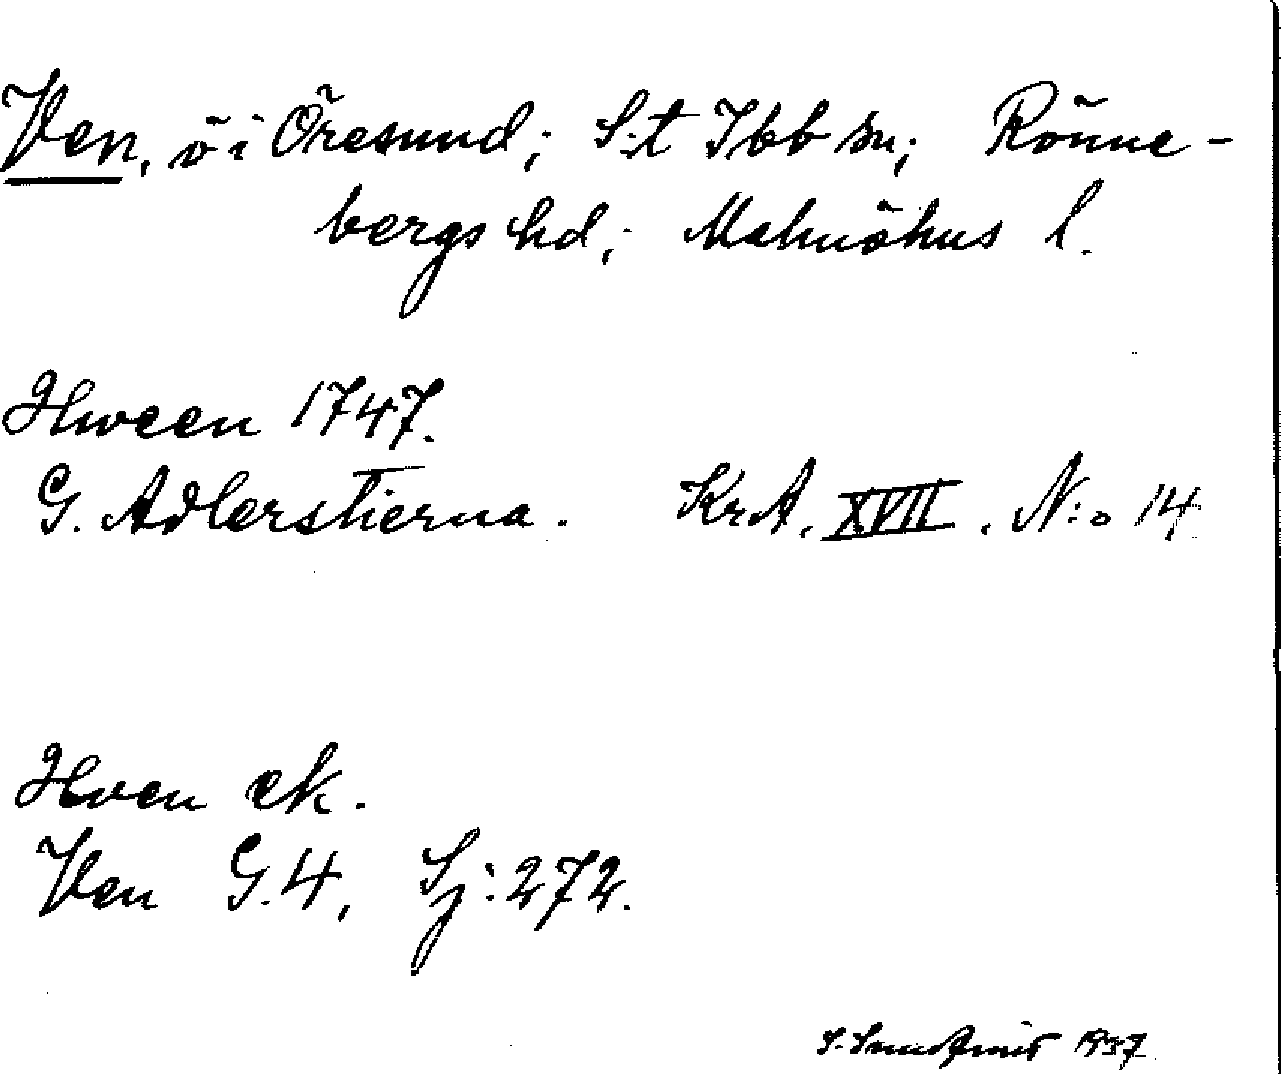 Ven, ö i Öresund; S:t Ibb sn; Rönne-
bergs hd; Malmöhus l.
Hween 1747.
G. Adlerstierna. KrA. XVII. N:o 14
Hven ek.
Ven G.4, Sj:272.
1937